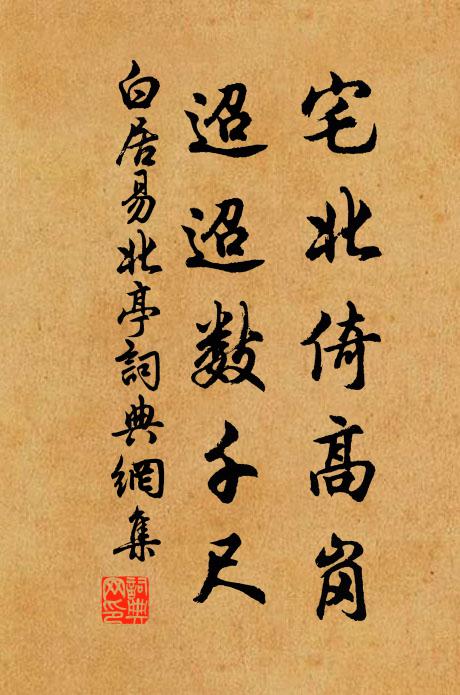 宅北倚高岗
迢迢数千尺
白居易北亭詞典網集
詞典网印